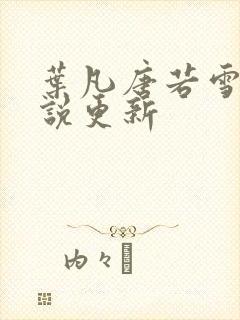 葉凡唐若雪
說更新
内々